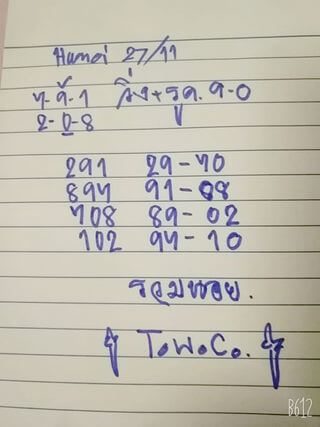 Hanoi 27/11
7-9-1 วิ่ง+รูด. 9-0
2-0-8
291 29-70
897 91-08
708 89-02
102 97-10
รวมหอย.
ToWoCo.
B612